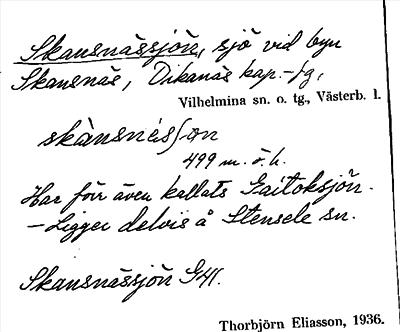 Skansnässjön, sjö vid byn
Skansnäs, Dikanäs kap.-fg,
Vilhelmina sn. o. tg., Västerb. l.
skànsnésʃọn
499 m. ö. h.
Har förr även kallats Gaitoksjön.
– Ligger delvis å Stensele sn.
Skansnässjön G41.
Thorbjörn Eliasson, 1936.